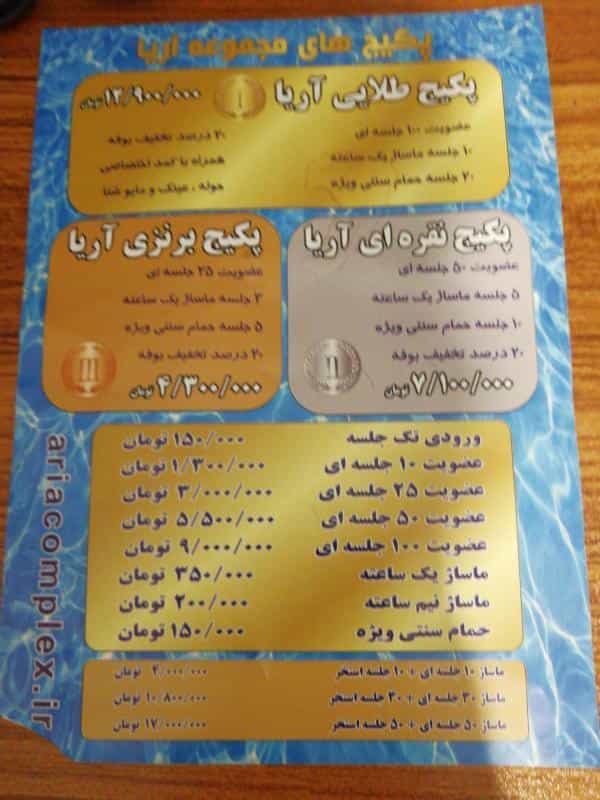 پکیج های مجموعه آریا
پکیج طلایی آریا
I
۱۲/۹۰۰/۰۰۰ تومان
عضویت ۱۰۰ جلسه ای
۱۰ جلسه ماساژ یک ساعته
۲۰ جلسه حمام سنتی ویژه
۲۰ درصد تخفیف بوفه
همراه با کمد اختصاصی
حوله ، عینک و مایو شنا
پکیج نقره ای آریا
عضویت ۵۰ جلسه ای
۵ جلسه ماساژ یک ساعته
۱۰ جلسه حمام سنتی ویژه
۲۰ درصد تخفیف بوفه
II
۷/۱۰۰/۰۰۰ تومان
پکیج برنزی آریا
عضویت ۲۵ جلسه ای
۳ جلسه ماساژ یک ساعته
۵ جلسه حمام سنتی ویژه
۲۰ درصد تخفیف بوفه
III
۴/۳۰۰/۰۰۰ تومان
ورودی تک جلسه ۱۵۰/۰۰۰ تومان
عضویت ۱۰ جلسه ای ۱/۳۰۰/۰۰۰ تومان
عضویت ۲۵ جلسه ای ۳/۰۰۰/۰۰۰ تومان
عضویت ۵۰ جلسه ای ۵/۵۰۰/۰۰۰ تومان
عضویت ۱۰۰ جلسه ای ۹/۰۰۰/۰۰۰ تومان
ماساژ یک ساعته ۳۵۰/۰۰۰ تومان
ماساژ نیم ساعته ۲۰۰/۰۰۰ تومان
حمام سنتی ویژه ۱۵۰/۰۰۰ تومان
ماساژ ۱۰ جلسه ای + ۱۰ جلسه استخر ۴/۰۰۰/۰۰۰ تومان
ماساژ ۳۰ جلسه ای + ۳۰ جلسه استخر ۱۰/۸۰۰/۰۰۰ تومان
ماساژ ۵۰ جلسه ای + ۵۰ جلسه استخر ۱۷/۰۰۰/۰۰۰ تومان
ariacomplex.ir